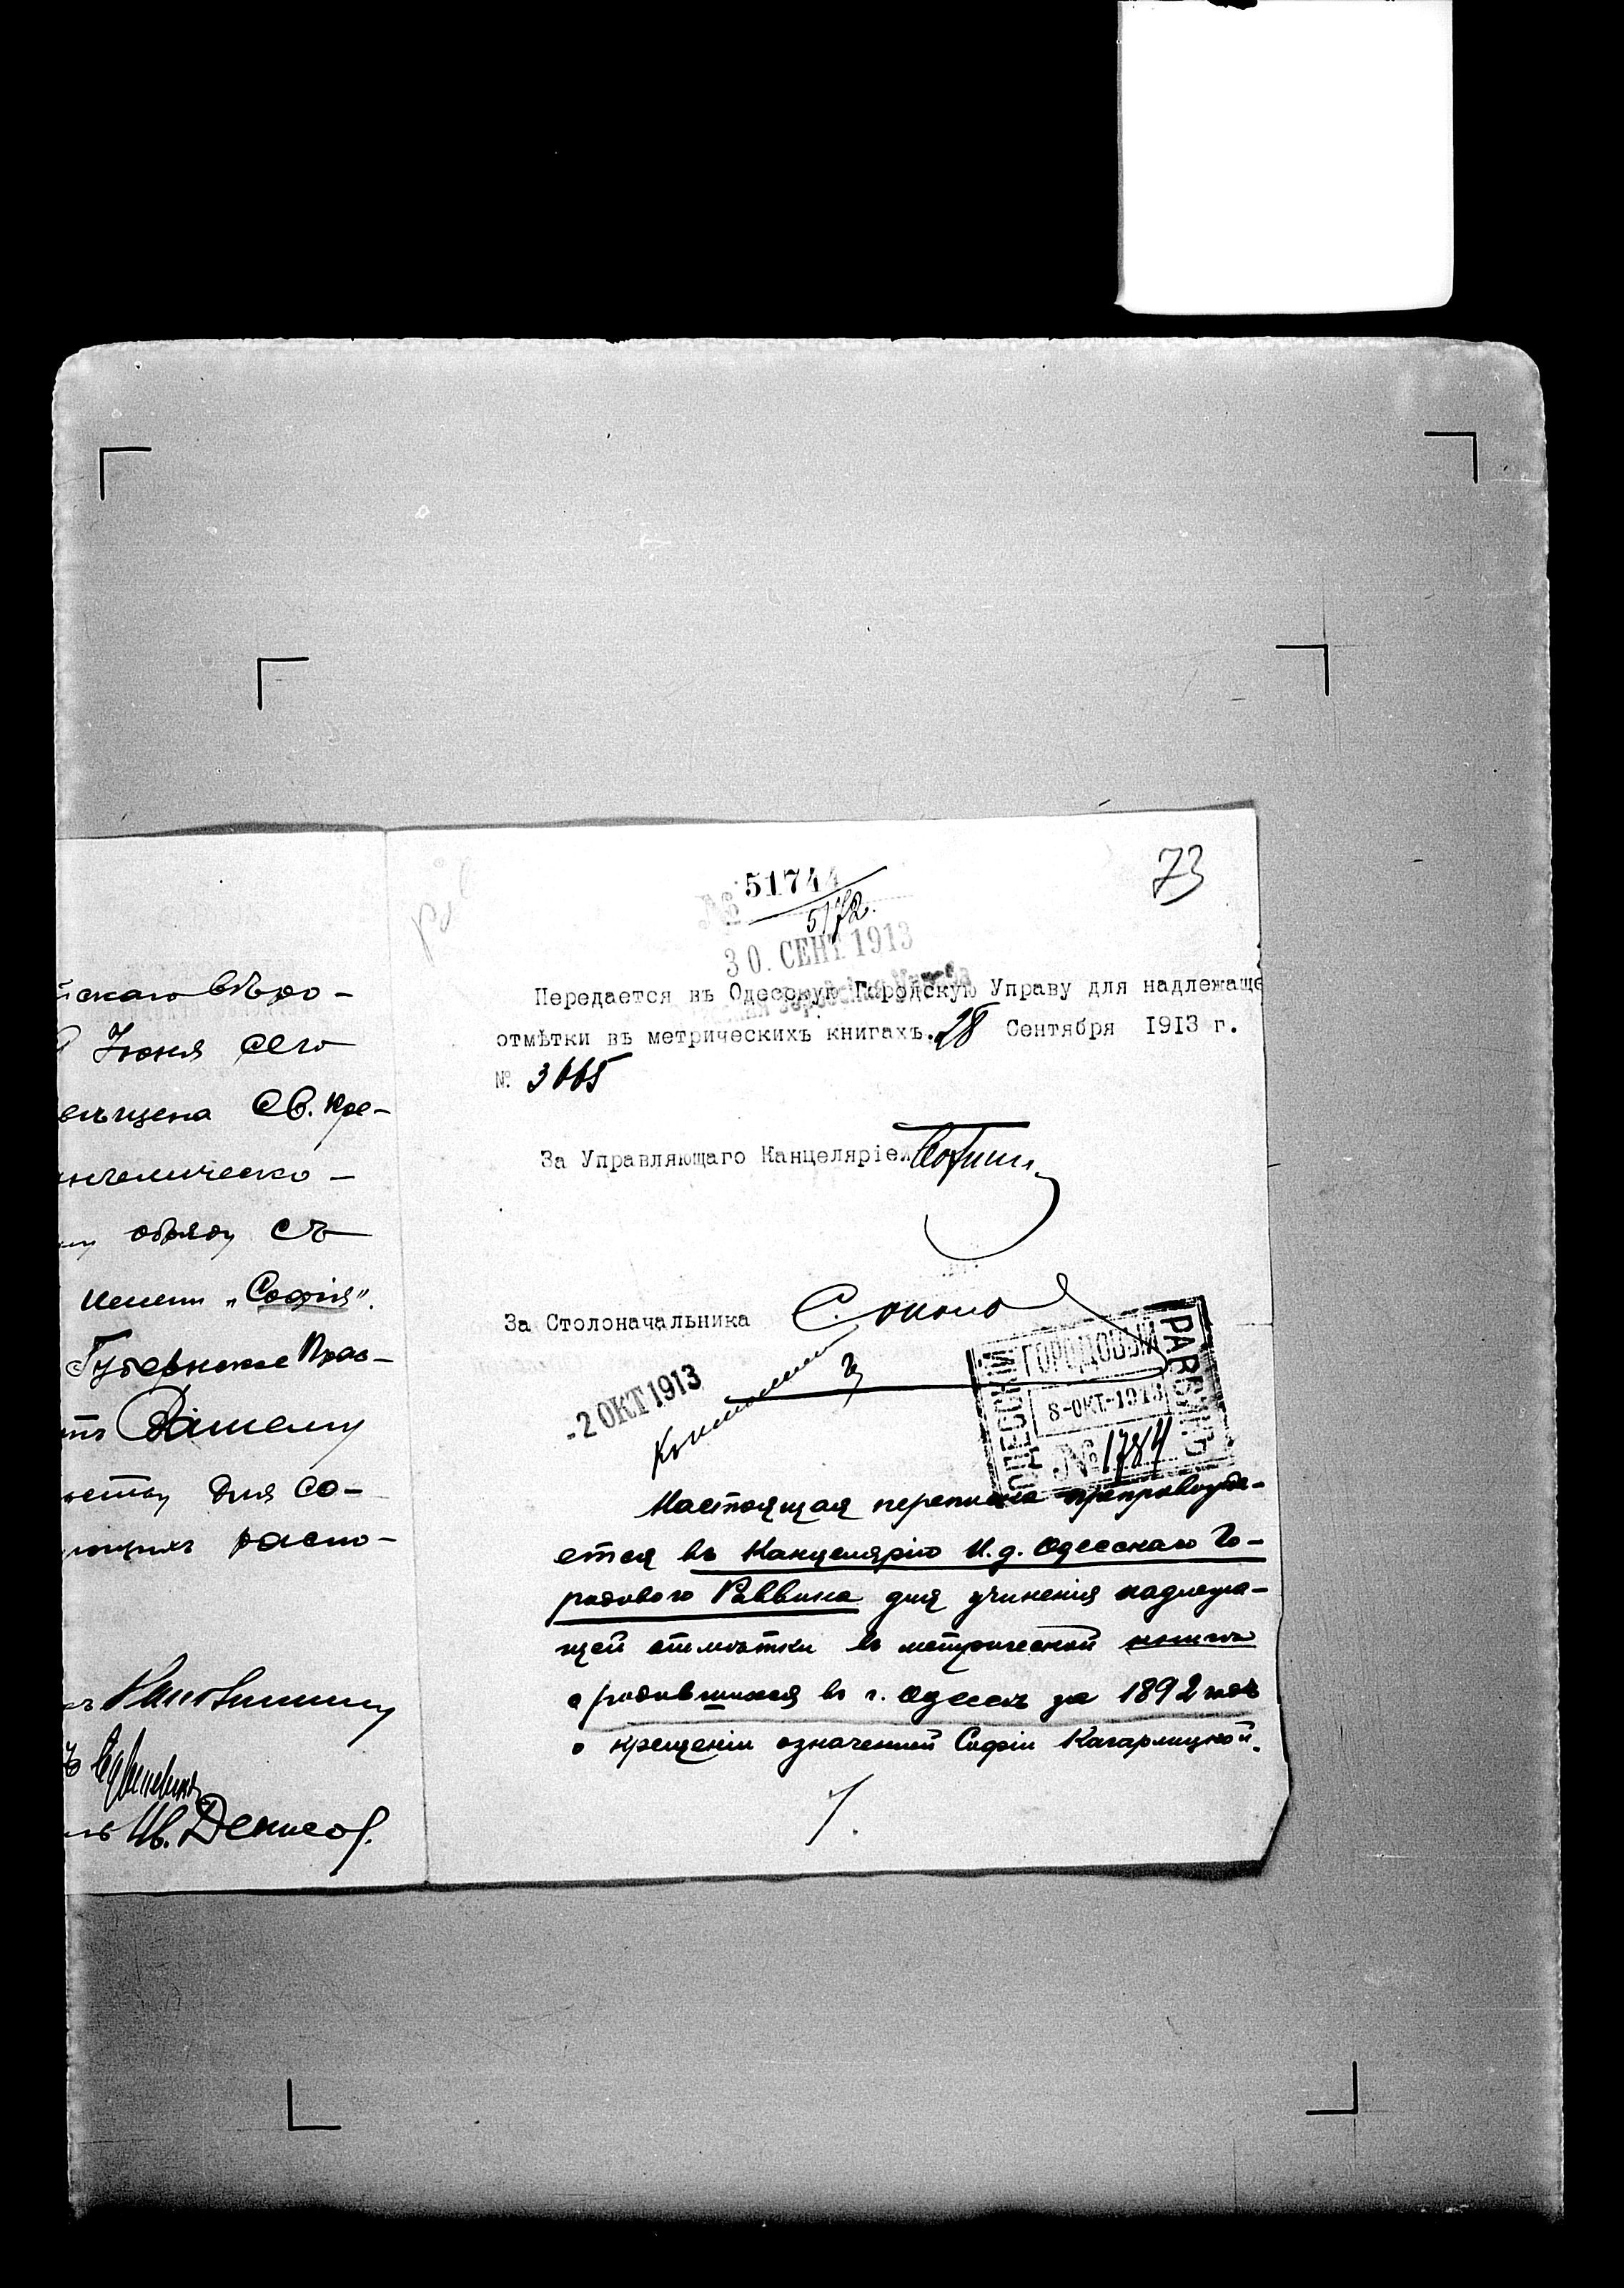 скаго вѣро-
Іюня сего
Св. Кре-
ангелическо-
обряду съ
имени „Софія".
Губернское Прав-
Вашему
для со-
распо-
Ив. Денисов
73
№ 51744
5172.
30. СЕНТ 1913
Передается въ Одесскую Городскую Управу для надлежаще
отмѣтки въ метрическихъ книгахъ. 28 Сентября 1913 г.
№ 3665
За Управляющаго Канцеляріей
За Столоначальника
-2 ОКТ 1913
ОДЕССКІЙ
ГОРОДОВЫЙ
РАВВИНЪ
8-ОКТ-1913
№ 1784
Настоящая переписка препровожда-
ется въ Канцелярію И.д. Одесскаго Го-
родового Раввина для учиненія надлежа-
щей отмѣтки въ метрической книгѣ
о родившихся въ г. Одессѣ за 1892 годъ
о крещеніи означенной Софіи Кагарлицкой.